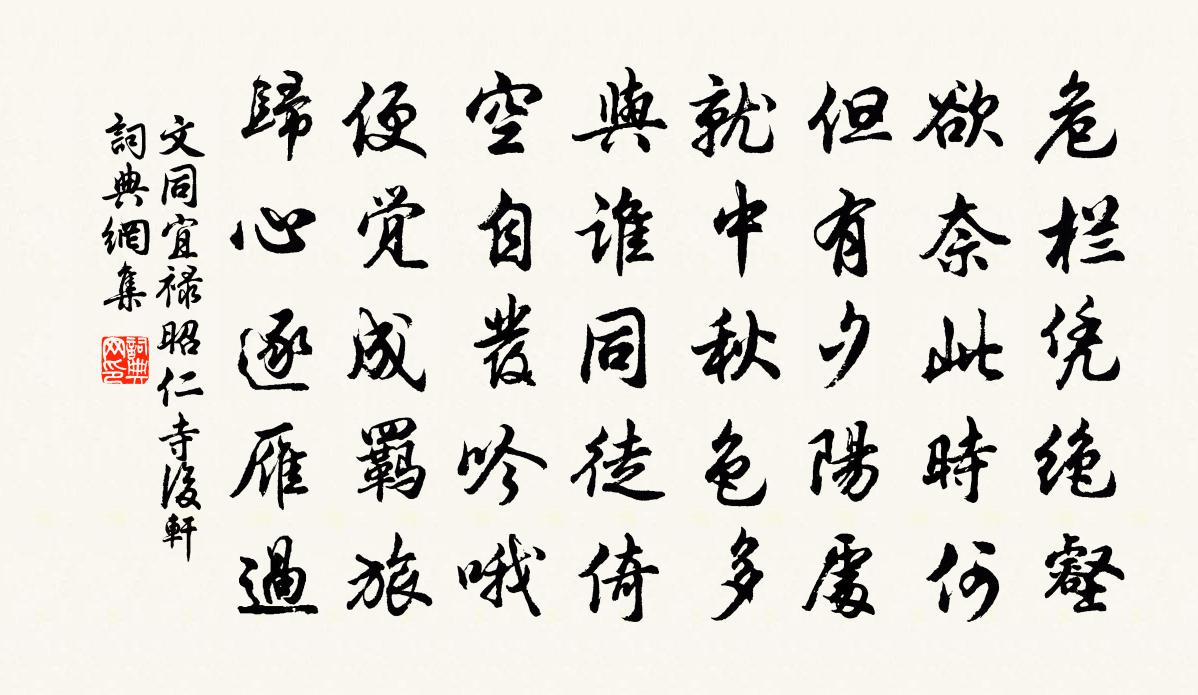 危栏凭绝壑
欲奈此时何
但有夕陽處
就中秋色多
與谁同徒倚
空自發吟哦
便觉成羁旅
歸心逐雁過
文同宜禄昭仁寺後軒
詞典網集
詞典
网印